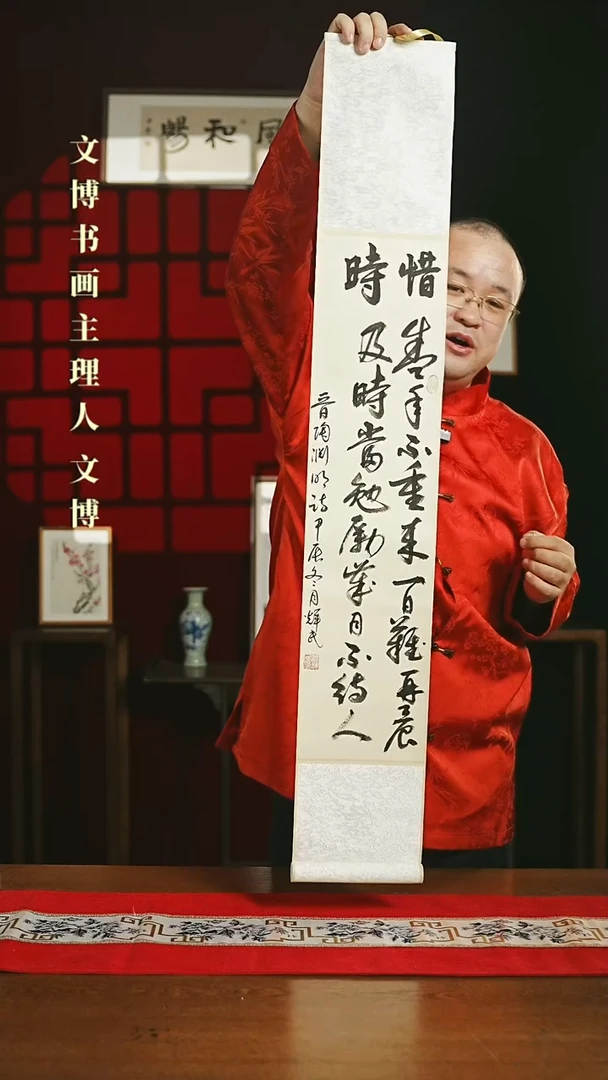 文博书画主理人 文博
風和暢
惜時
盛年不重来一日難再晨
及時當勉勵歲月不待人
晋陶渊明诗甲辰冬月輝民